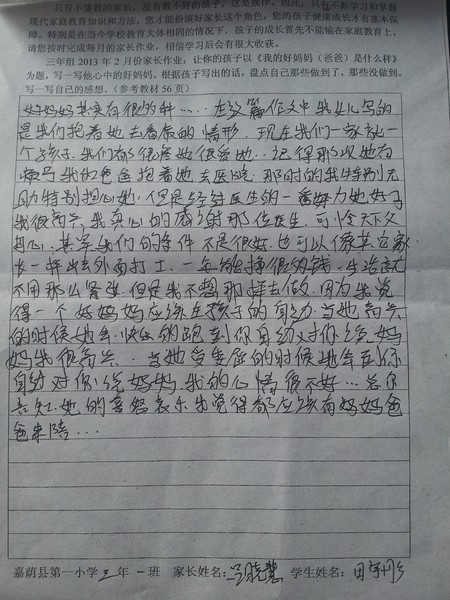 只有不懂教的家长，没有教不好的孩子，这是规律。因此，只有不断学习和掌握
现代家庭教育知识和方法，您才能扮演好家长这个角色，您的孩子健康成长才有基本保
障。特别是在当今学校教育大体相同的情况下，孩子的成长首先不能输在家庭教育上。
请您按时完成每月的家长作业，相信学习后会有很大收获。
三年组 2013 年 2 月份家长作业：让你的孩子以《我的好妈妈（爸爸）是什么样》
为题，写一写他心中的好妈妈。根据孩子写出的话，盘点自己那些做到了，那些没做到。
写一写自己的感想。（参考教材 56 页）
好妈妈其实有很多种……在这篇作文中我女儿写的
是我们抱着她去看病的情形，现在我们一家就一
个孩子，我们都很爱她很爱她．记得那次她有
病了我和爸爸抱着她去医院，那时的我特别无
助特别担心她，但是经过医生的一番努力她好了
我很高兴，我真心的感谢那位医生，可怜天下父
母心，其实我们的条件不是很好，也可以像其它家
长一样出去外面打工，一年能挣很多钱，生活就
不用那么紧张，但是我不想那样去做，因为我觉
得一个好妈妈应该在孩子的身边，当她高兴
的时候她会快乐的跑到你身边对你说妈
妈我很高兴，当她受委屈的时候她会到你
身边对你说妈妈我的心情很不好…
她的喜怒哀乐我觉得都应该有妈妈爸
爸来陪…
嘉荫县第一小学 三 年 一 班 家长姓名： 晓慧 学生姓名： 田